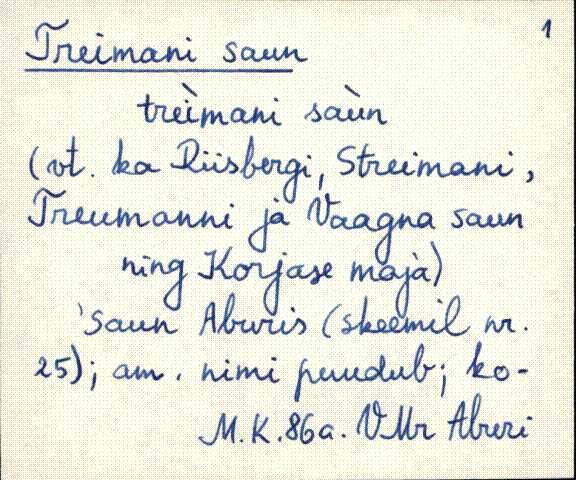 1
Treimani saun
treìmani saùn
(vt. ka Riisbergi, Streimani,
Treumanni ja Vaagna saun
ning Korjase maja)
'Saun Abruris (skeemil nr.
25); am. nimi puudub; ko-
M.K. 86a. VMr Abruri